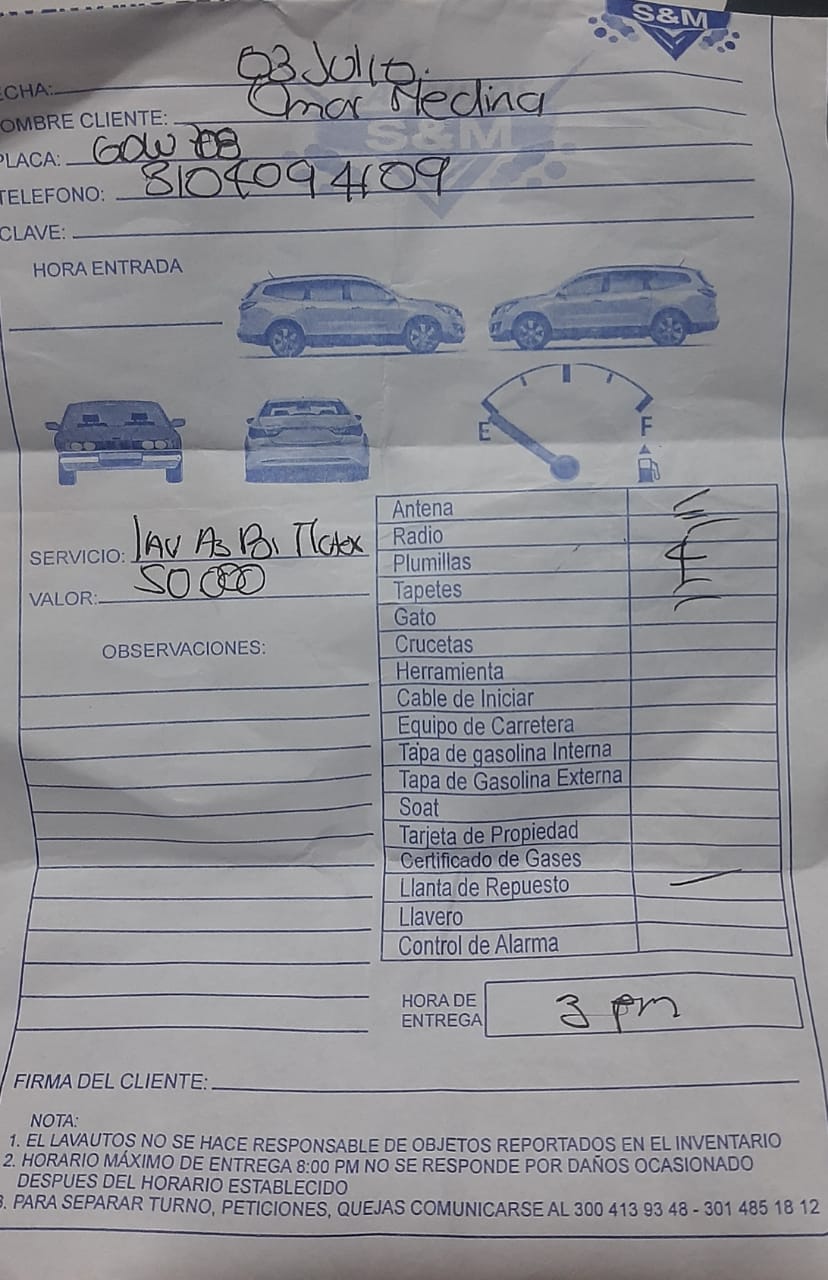 S&M
ECHA: 03 Julio.
OMBRE CLIENTE: Omar Medina
S&M
PLACA:
TELEFONO: 3104094109
CLAVE:
HORA ENTRADA
E F
SERVICIO: lAV As
VALOR: 50000
OBSERVACIONES:
Antena
Radio
Plumillas
Tapetes
Gato
Crucetas
Herramienta
Cable de Iniciar
Equipo de Carretera
Tapa de gasolina Interna
Tapa de Gasolina Externa
Soat
Tarjeta de Propiedad
Certificado de Gases
Llanta de Repuesto
Llavero
Control de Alarma
HORA DE
ENTREGA 3 pm
FIRMA DEL CLIENTE:
NOTA:
1. EL LAVAUTOS NO SE HACE RESPONSABLE DE OBJETOS REPORTADOS EN EL INVENTARIO
2. HORARIO MÁXIMO DE ENTREGA 8:00 PM NO SE RESPONDE POR DAÑOS OCASIONADO
DESPUES DEL HORARIO ESTABLECIDO
3. PARA SEPARAR TURNO, PETICIONES, QUEJAS COMUNICARSE AL 300 413 93 48 - 301 485 18 12